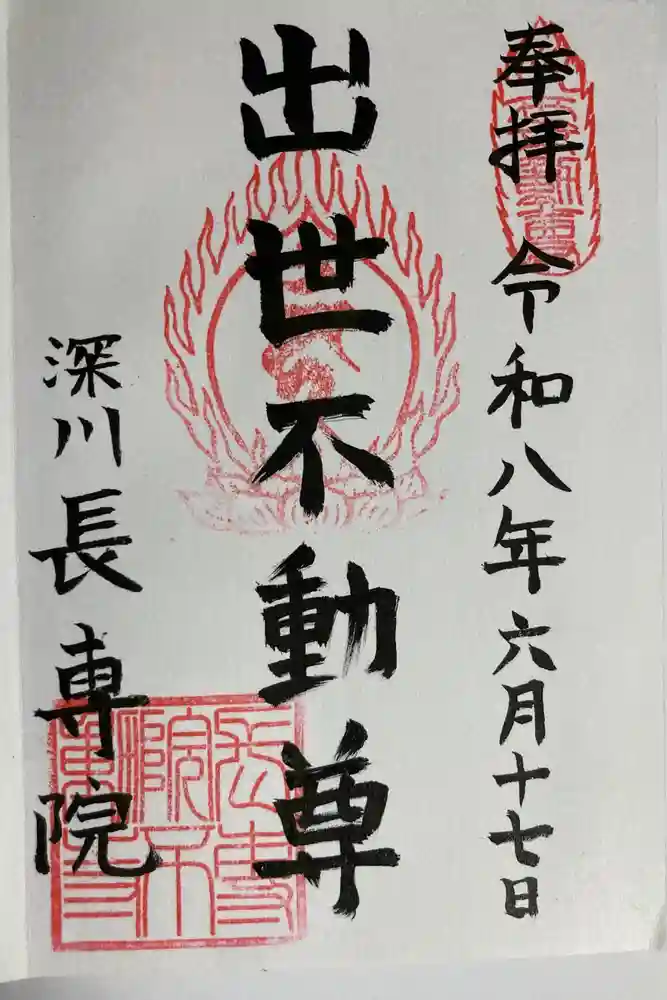 奉拝 令和八年六月十七日
出世不動尊
深川 長専院